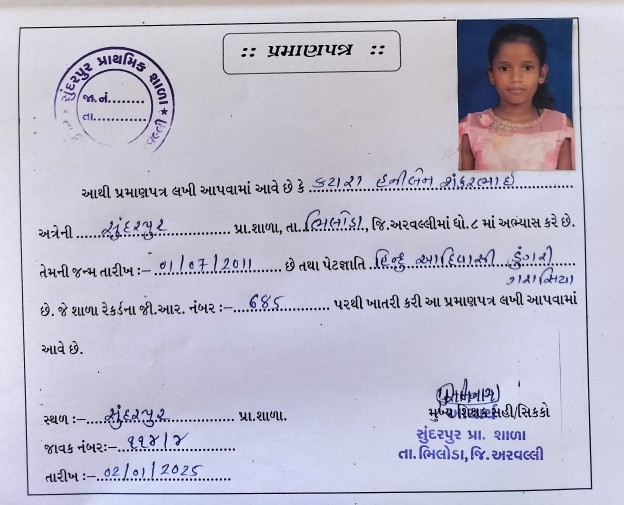 :: પ્રમાણપત્ર ::
સુંદરપુર પ્રાથમિક શાળા
જા.નં.........
તા..........
આથી પ્રમાણપત્ર લખી આપવામાં આવે છે કે કટારા હનીબેન શંકરભાઈ
અત્રેની સુંદરપુર પ્રા.શાળા, તા. ભિલોડા, જિ.અરવલ્લીમાં ધો.૮ માં અભ્યાસ કરે છે.
તેમની જન્મ તારીખ :- 01/07/2011 છે તથા પેટાજ્ઞાતિ હિન્દુ આદિવાસી ડુંગરી
ગરાસિયા
છે. જે શાળા રેકર્ડના જી.આર. નંબર :- 685 પરથી ખાતરી કરી આ પ્રમાણપત્ર લખી આપવામાં
આવે છે.
સ્થળ :- સુંદરપુર પ્રા.શાળા.
જાવક નંબર:- ૧૧૪/૪
તારીખ :- 02/01/2025
મુખ્ય શિક્ષક સહી/સિક્કો
સુંદરપુર પ્રા. શાળા
તા.ભિલોડા, જિ.અરવલ્લી